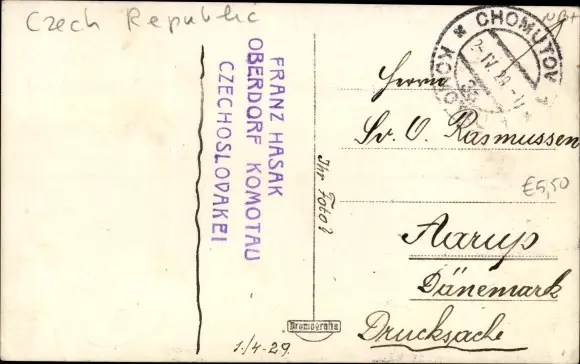 Czech Republic
FRANZ HASAK
OBERDORF KOMOTAU
CZECHOSLOVAKEI
Ihr Foto?
Bromografia
1./4-29.
CHOMUTOV
Herrn
Sv. O. Rasmussen
€5,50
Aarup
Dänemark
Drucksache